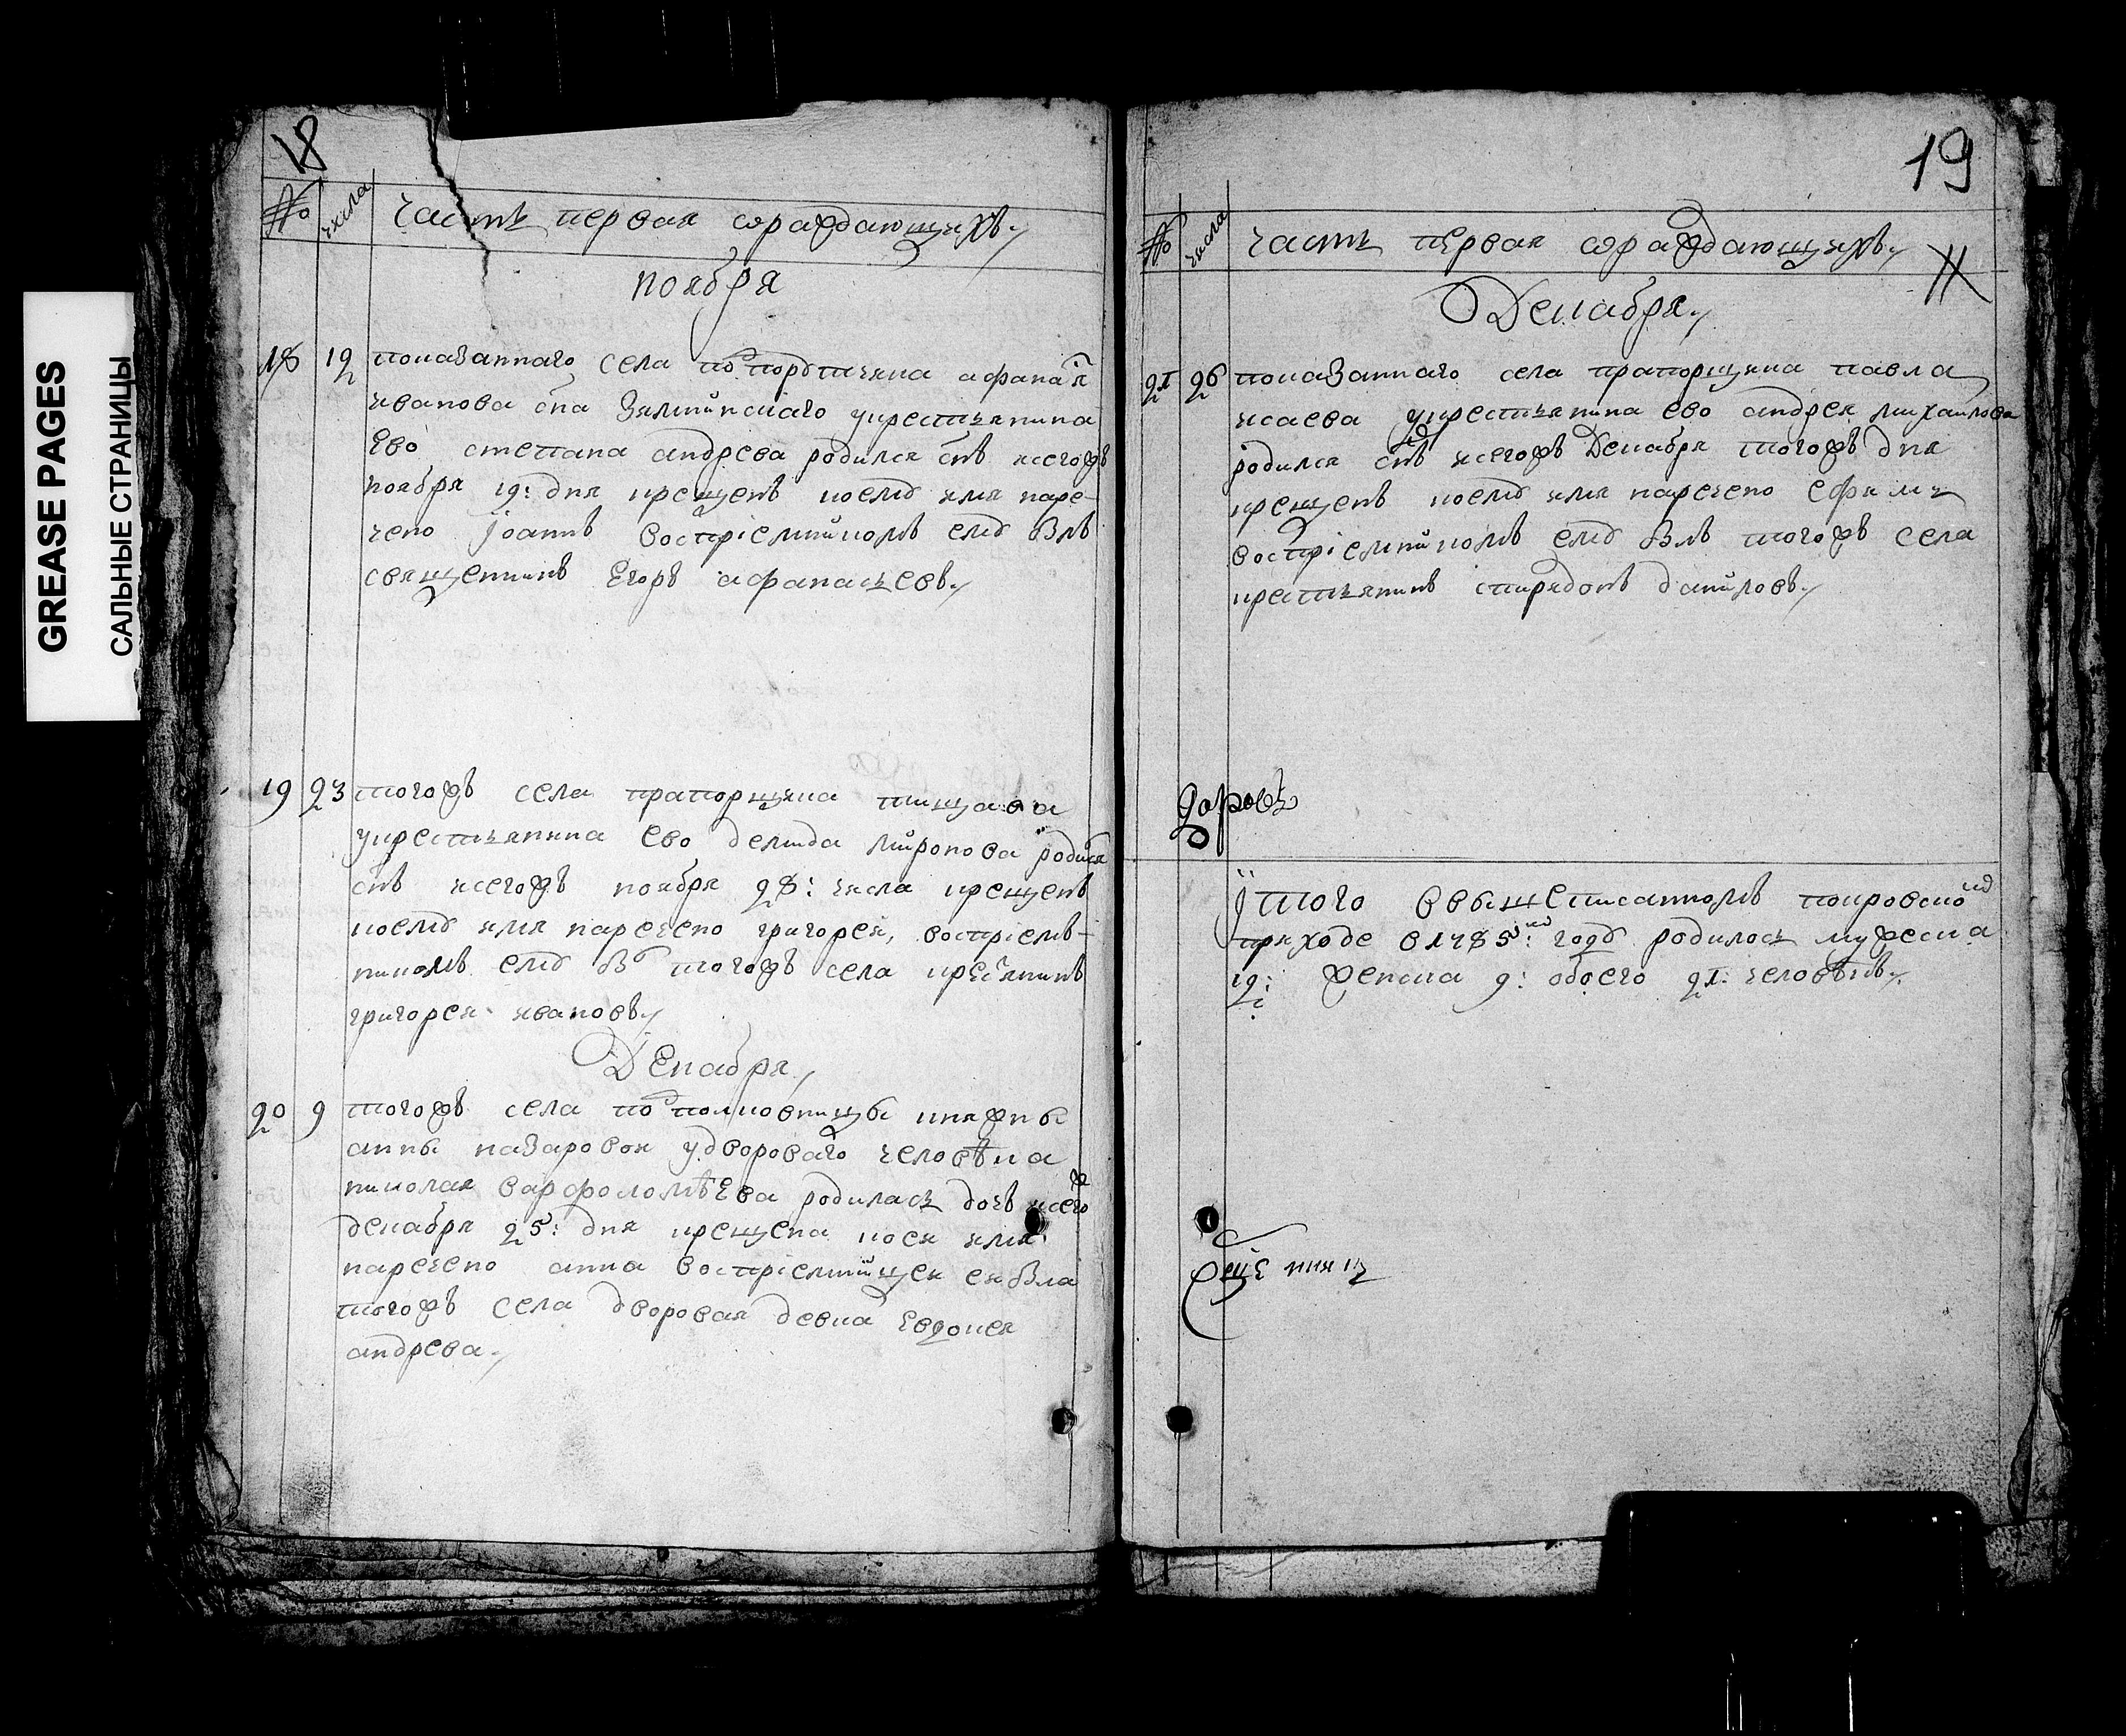 GREASE PAGES
САЛЬНЫЕ СТРАНИЦЫ
18
№ числа часть первая ѡраждающихъ
ноября
18 12 показаннаго села подпорутчика афанас͠я
иванова сн͠а Зилминскаго укрестьянина
Ево степана андрева родился сн͠ъ исегожъ
ноября 12: дня крещенъ коему имя наре-
чено Iоаннъ воспрiемникомъ ему былъ
священникъ Егоръ афанасьевъ
19 23 тогожъ села прапорщика пищава
укрестьянина ево демида миронова родился
сн͠ъ исегожъ ноября 28: числа крещенъ
коему имя наречено григорей, воспрiем-
никомъ ему былъ тогожъ села крестьянинъ
григорей ивановъ
Декабря
20 9 тогожъ села подполковницы княжны
анны назаровой удворовагo человѣка
николая варфоломѣева родилась дочь исегож
декабря 25: дня крещена коей имя
наречено анна воспрiемницей ей была
тогожъ села дворовая девка Евдокея
андрева
19
№ числа часть первая ѡраждающихъ
Декабря
21 26 показаннаго села прапорщика павла
исаева укрестьянина ево андрея михаилова
родился сн͠ъ исегожъ Декабря тогожъ дня
крещенъ коему имя наречено ефимъ
воспрiемникомъ ему былъ тогожъ села
крестьянинъ спиридонъ даниловъ
Iтого ввышеписанномъ покровскомъ
приходе в1785мъ: годѣ родилось мужеска
12: женска 9: обоего 21: человѣкъ